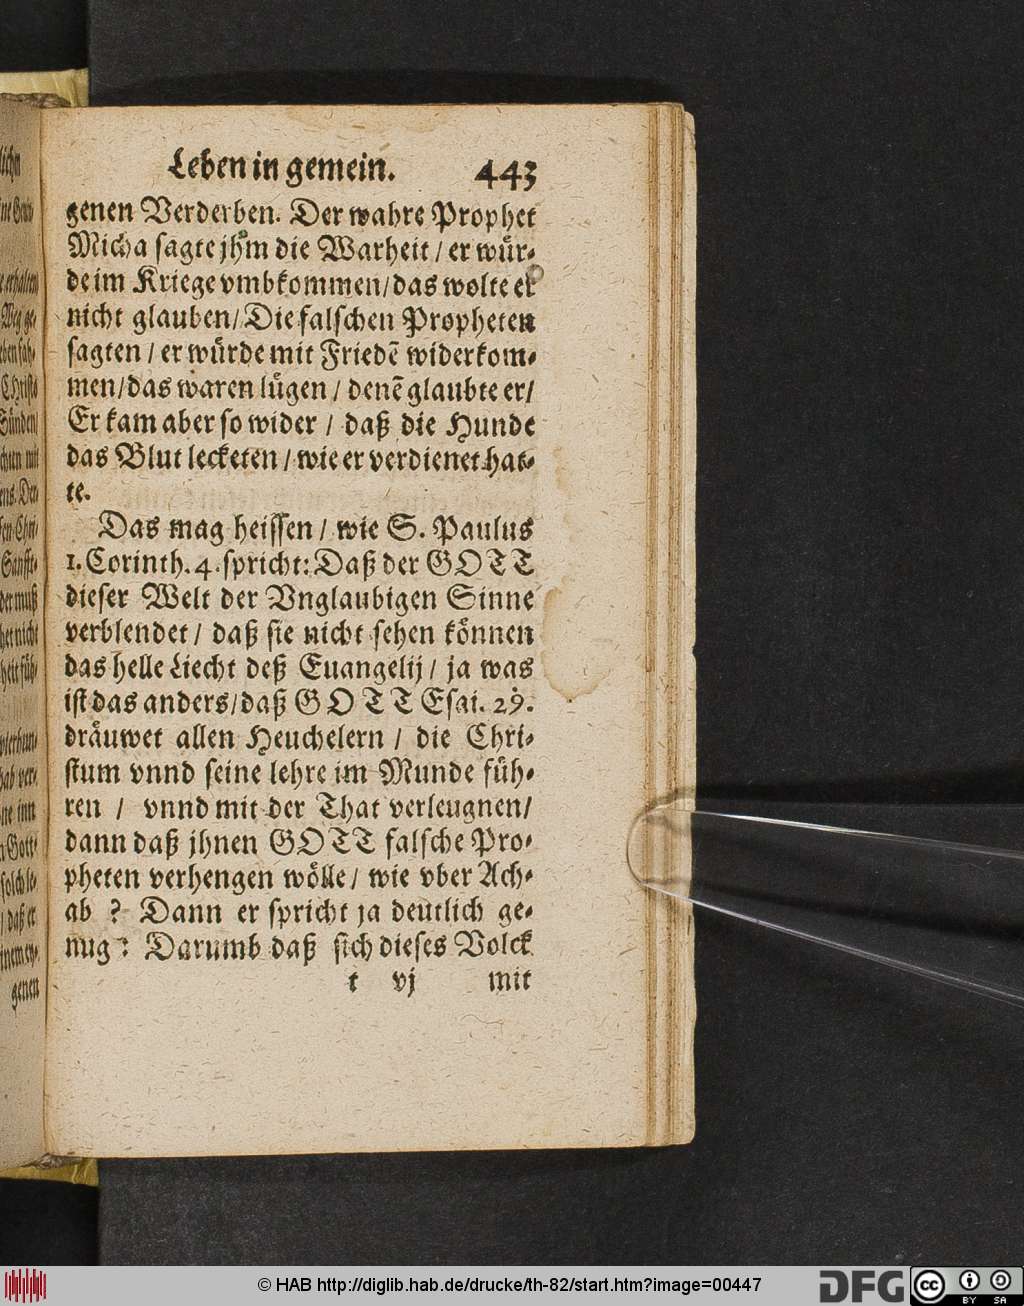 Leben in gemein. 443
genen Verderben. Der wahre Prophet
Micha sagte jhm die Warheit / er wuͤr-
de im Kriege vmbkommen / das wolte er
nicht glauben / Die falschen Propheten
sagten / er wuͤrde mit Friedē widerkom-
men / das waren luͤgen / denē glaubte er /
Er kam aber so wider / daß die Hunde
das Blut lecketen / wie er verdienet hat-
te.
Das mag heissen / wie S. Paulus
1. Corinth. 4. spricht: Daß der GOTT
dieser Welt der Vnglaubigen Sinne
verblendet / daß sie nicht sehen koͤnnen
das helle Liecht deß Euangelij / ja was
ist das anders / daß GOTT Esai. 29.
draͤuwet allen Heuchelern / die Chri-
stum vnnd seine lehre im Munde fuͤh-
ren / vnnd mit der That verleugnen /
dann daß jhnen GOTT falsche Pro-
pheten verhengen woͤlle / wie vber Ach-
ab ? Dann er spricht ja deutlich ge-
nug : Darumb daß sich dieses Volck
t vj mit
genen
© HAB http://diglib.hab.de/drucke/th-82/start.htm?image=00447
DFG
cc
BY SA